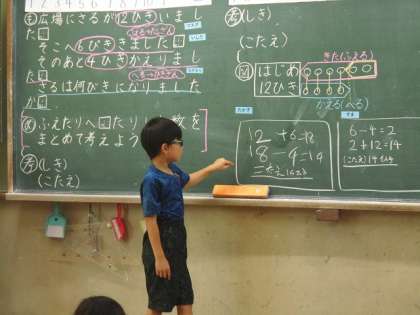 も 広場にさるが12ひきいまし
た。
そこへ6ぴききました。
そのあと4ひきかえりまし
た。
さるは何びきになりました
か。
ふえたりへったり 数を
まとめて考えよう
考 (しき)
(こたえ)
考 (しき)
(こたえ)
きた(ふえる)
図 はじめ
12ひき
かえる(へる)
12+6=18
18-4=14
こたえ14ひき
6-4=2
2+12=14
(こたえ)14ひき